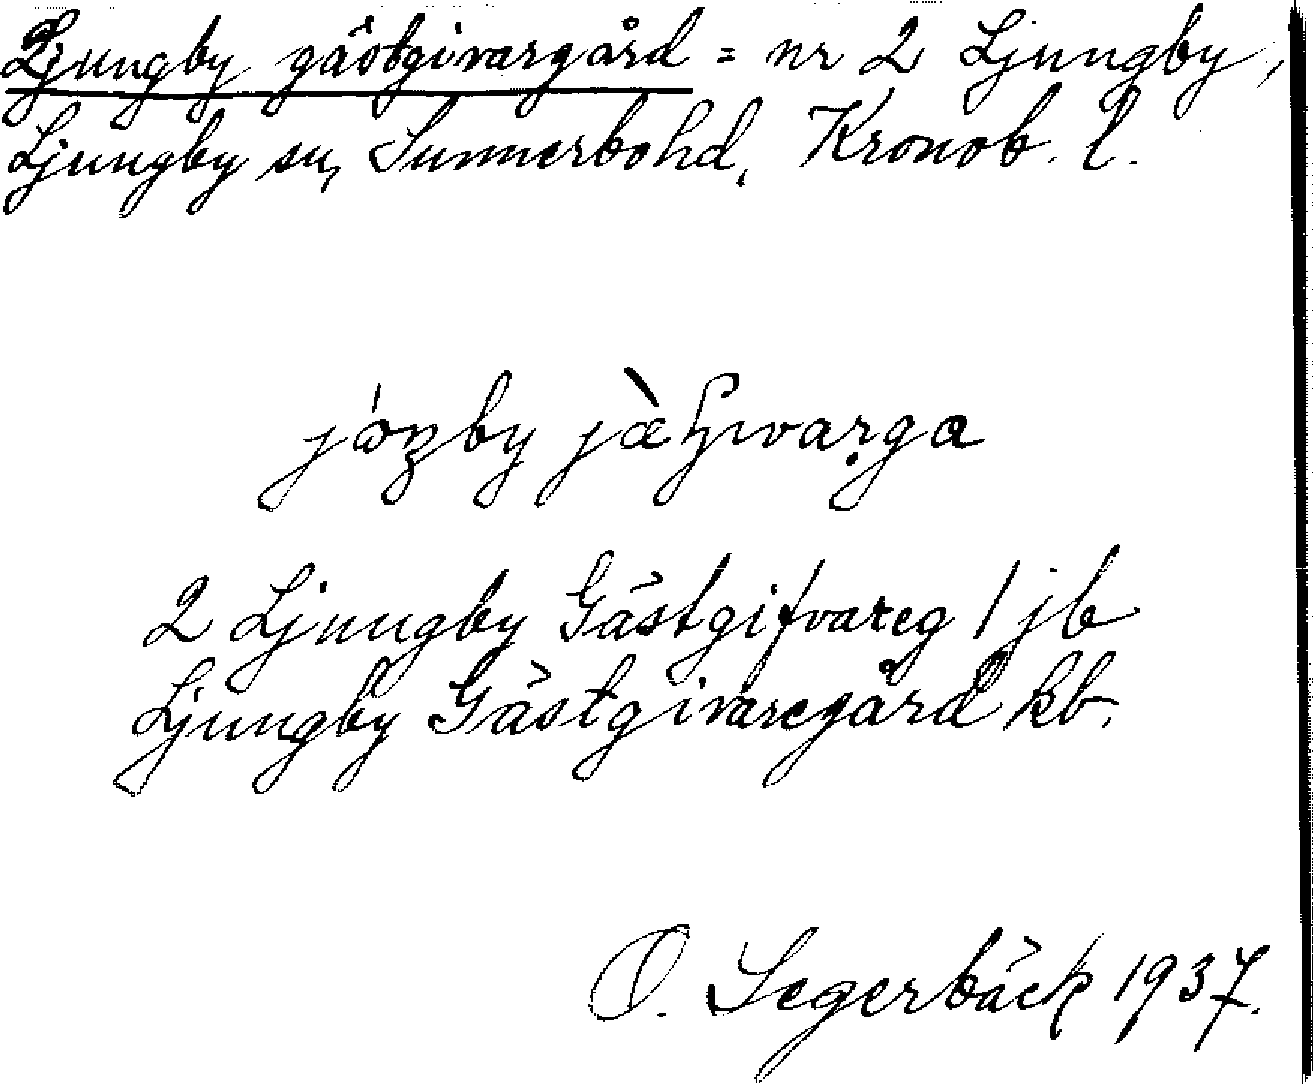 Ljungby gästgivargård = nr 2 Ljungby,
Ljungby sn, Sunnerbohd, Kronob. l.
2 Ljungby Gästgifvareg / jb
Ljungby Gästgivaregård kb.
O. Segerbäck 1937.